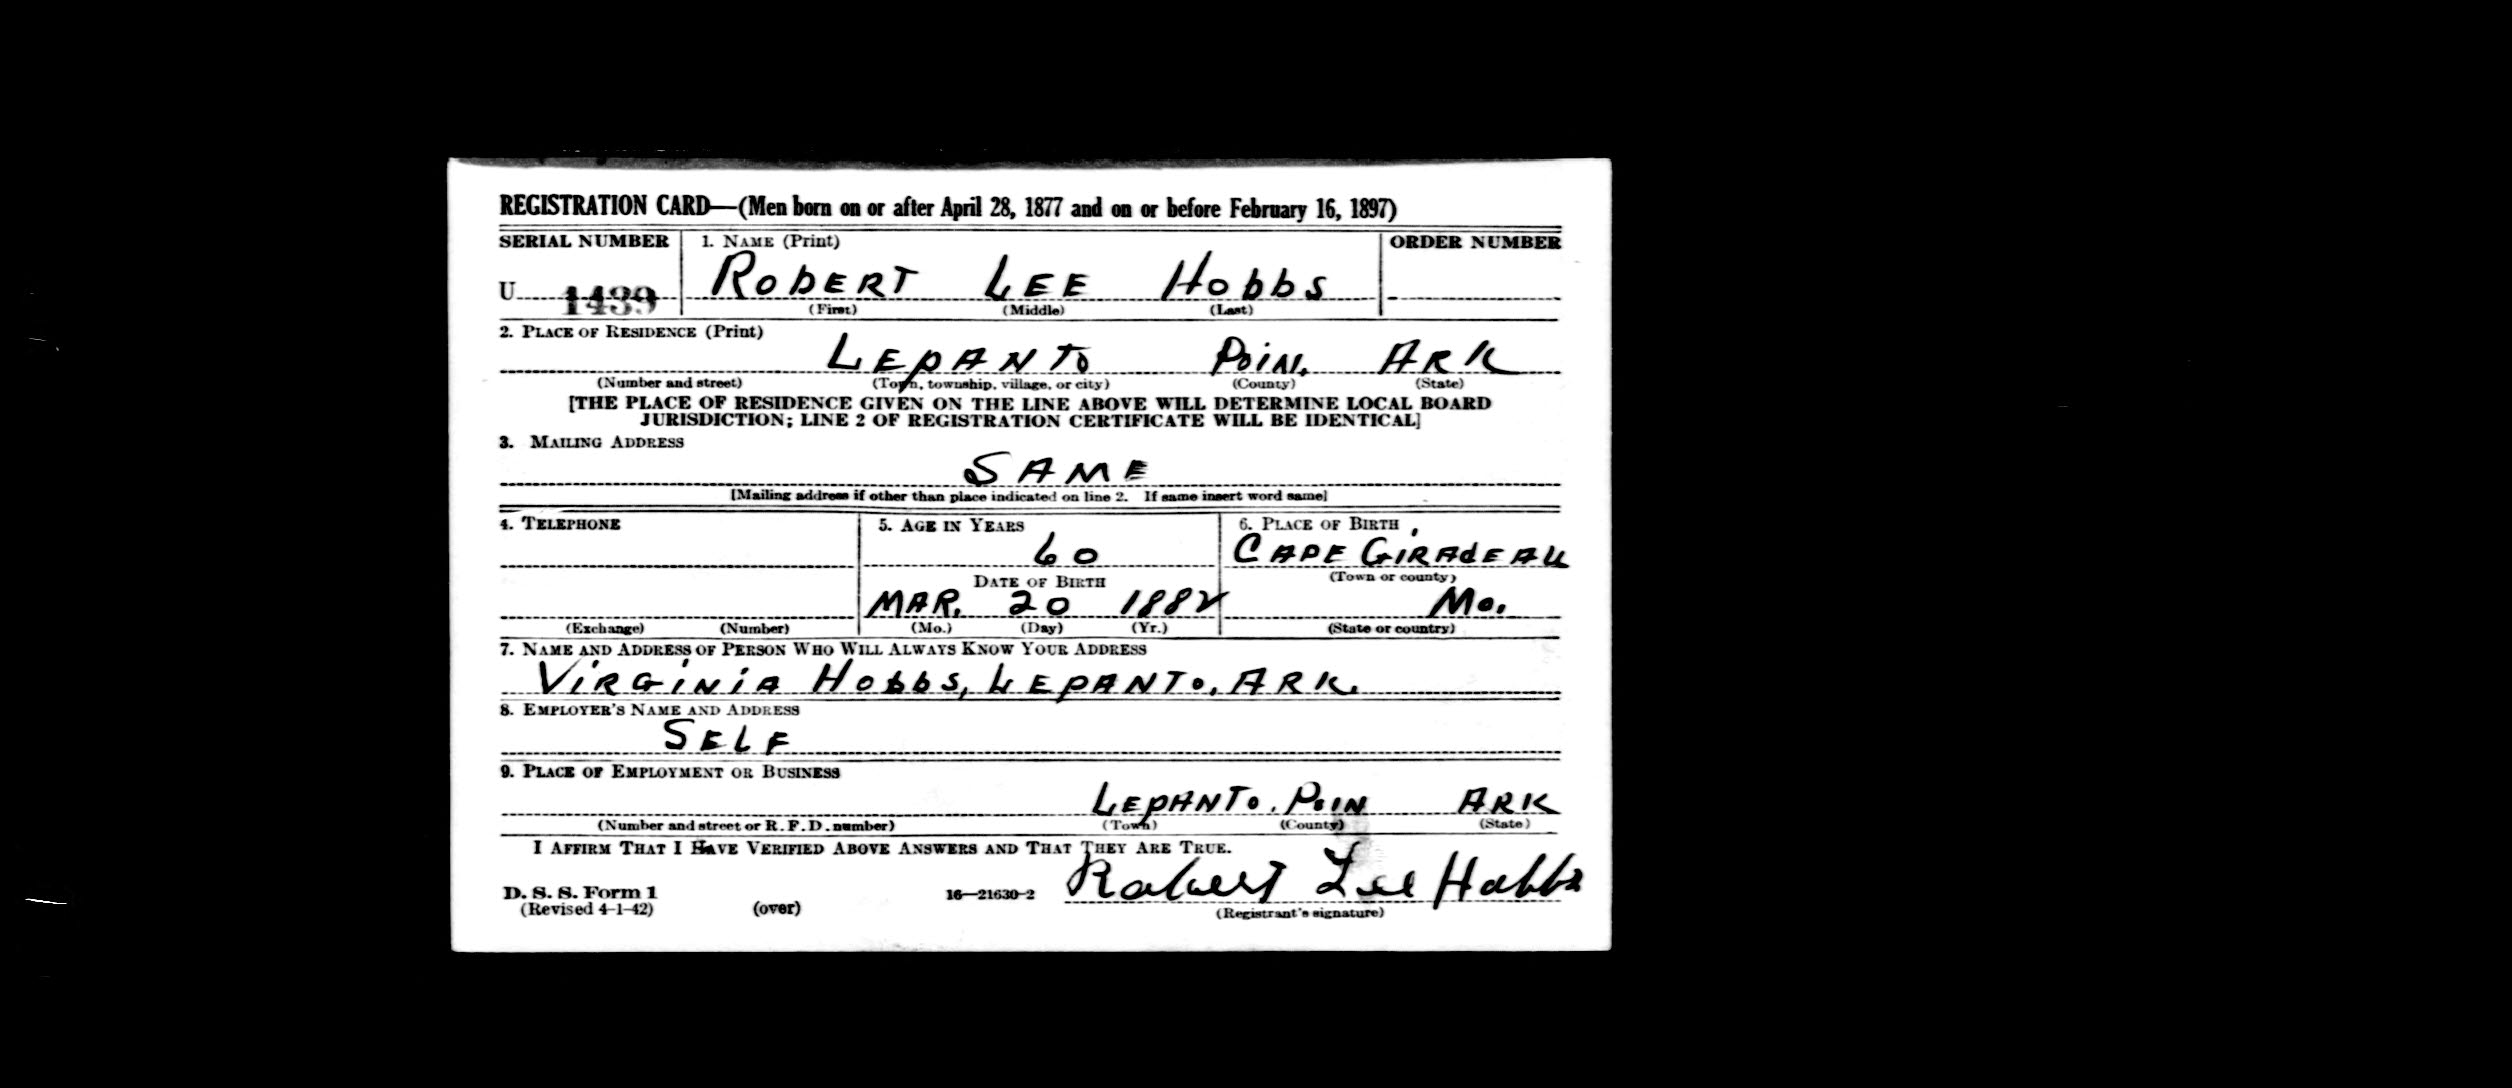 REGISTRATION CARD—(Men born on or after April 28, 1877 and on or before February 16, 1897)
SERIAL NUMBER 1. NAME (Print) ORDER NUMBER
U 1439 ROBERT LEE HOBBS
(First) (Middle) (Last)
2. PLACE OF RESIDENCE (Print)
LEPANTO POIN. ARK
(Number and street) (Town, township, village, or city) (County) (State)
[THE PLACE OF RESIDENCE GIVEN ON THE LINE ABOVE WILL DETERMINE LOCAL BOARD
JURISDICTION; LINE 2 OF REGISTRATION CERTIFICATE WILL BE IDENTICAL]
3. MAILING ADDRESS
SAME
[Mailing address if other than place indicated on line 2. If same insert word same]
4. TELEPHONE 5. AGE IN YEARS 6. PLACE OF BIRTH
60 CAPE GIRADEAU
DATE OF BIRTH (Town or county)
MAR. 20 1882 MO.
(Exchange) (Number) (Mo.) (Day) (Yr.) (State or country)
7. NAME AND ADDRESS OF PERSON WHO WILL ALWAYS KNOW YOUR ADDRESS
VIRGINIA HOBBS, LEPANTO, ARK.
8. EMPLOYER'S NAME AND ADDRESS
SELF
9. PLACE OF EMPLOYMENT OR BUSINESS
LEPANTO. POIN ARK
(Number and street or R. F. D. number) (Town) (County) (State)
I AFFIRM THAT I HAVE VERIFIED ABOVE ANSWERS AND THAT THEY ARE TRUE.
D. S. S. Form 1 16—21630-2 Robert Lee Hobbs
(Revised 4-1-42) (over) (Registrant's signature)